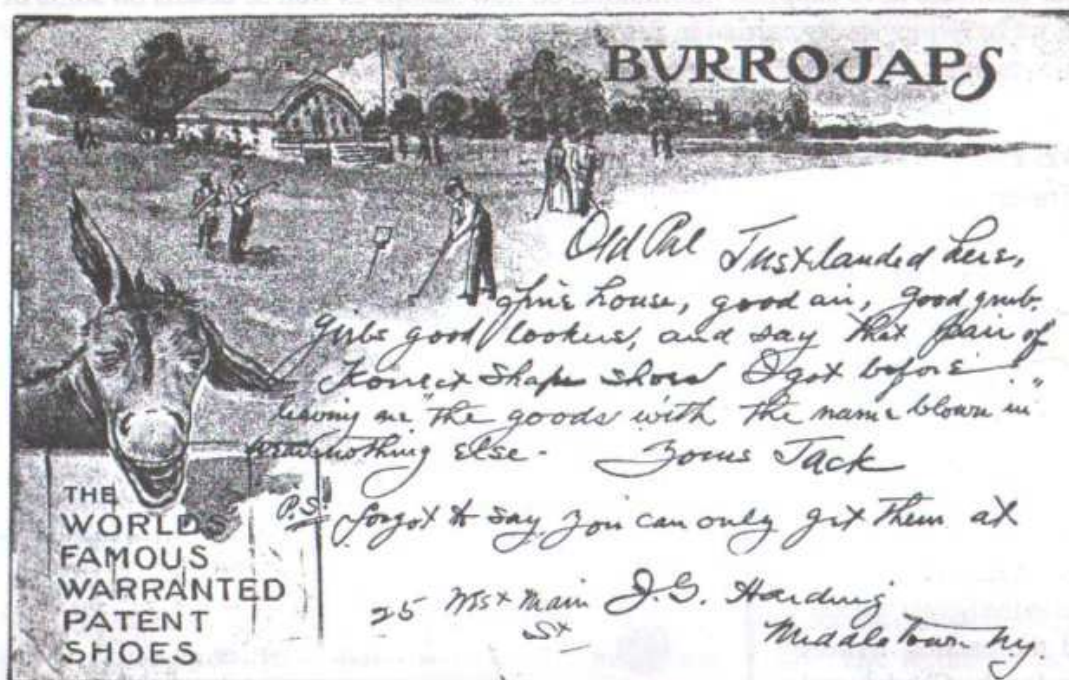 BURROJAPS
Old Pal Just landed here,
fine house, good air, good grub.
Girls good lookers, and say that pair of
Korrect Shape shoes I got before
leaving are "the goods with the name blown in"
wear nothing else - Yours Jack
P.S. forgot to say you can only get them at
25 West Main J.G. Harding
St
Middletown Ny.
THE
WORLDS
FAMOUS
WARRANTED
PATENT
SHOES